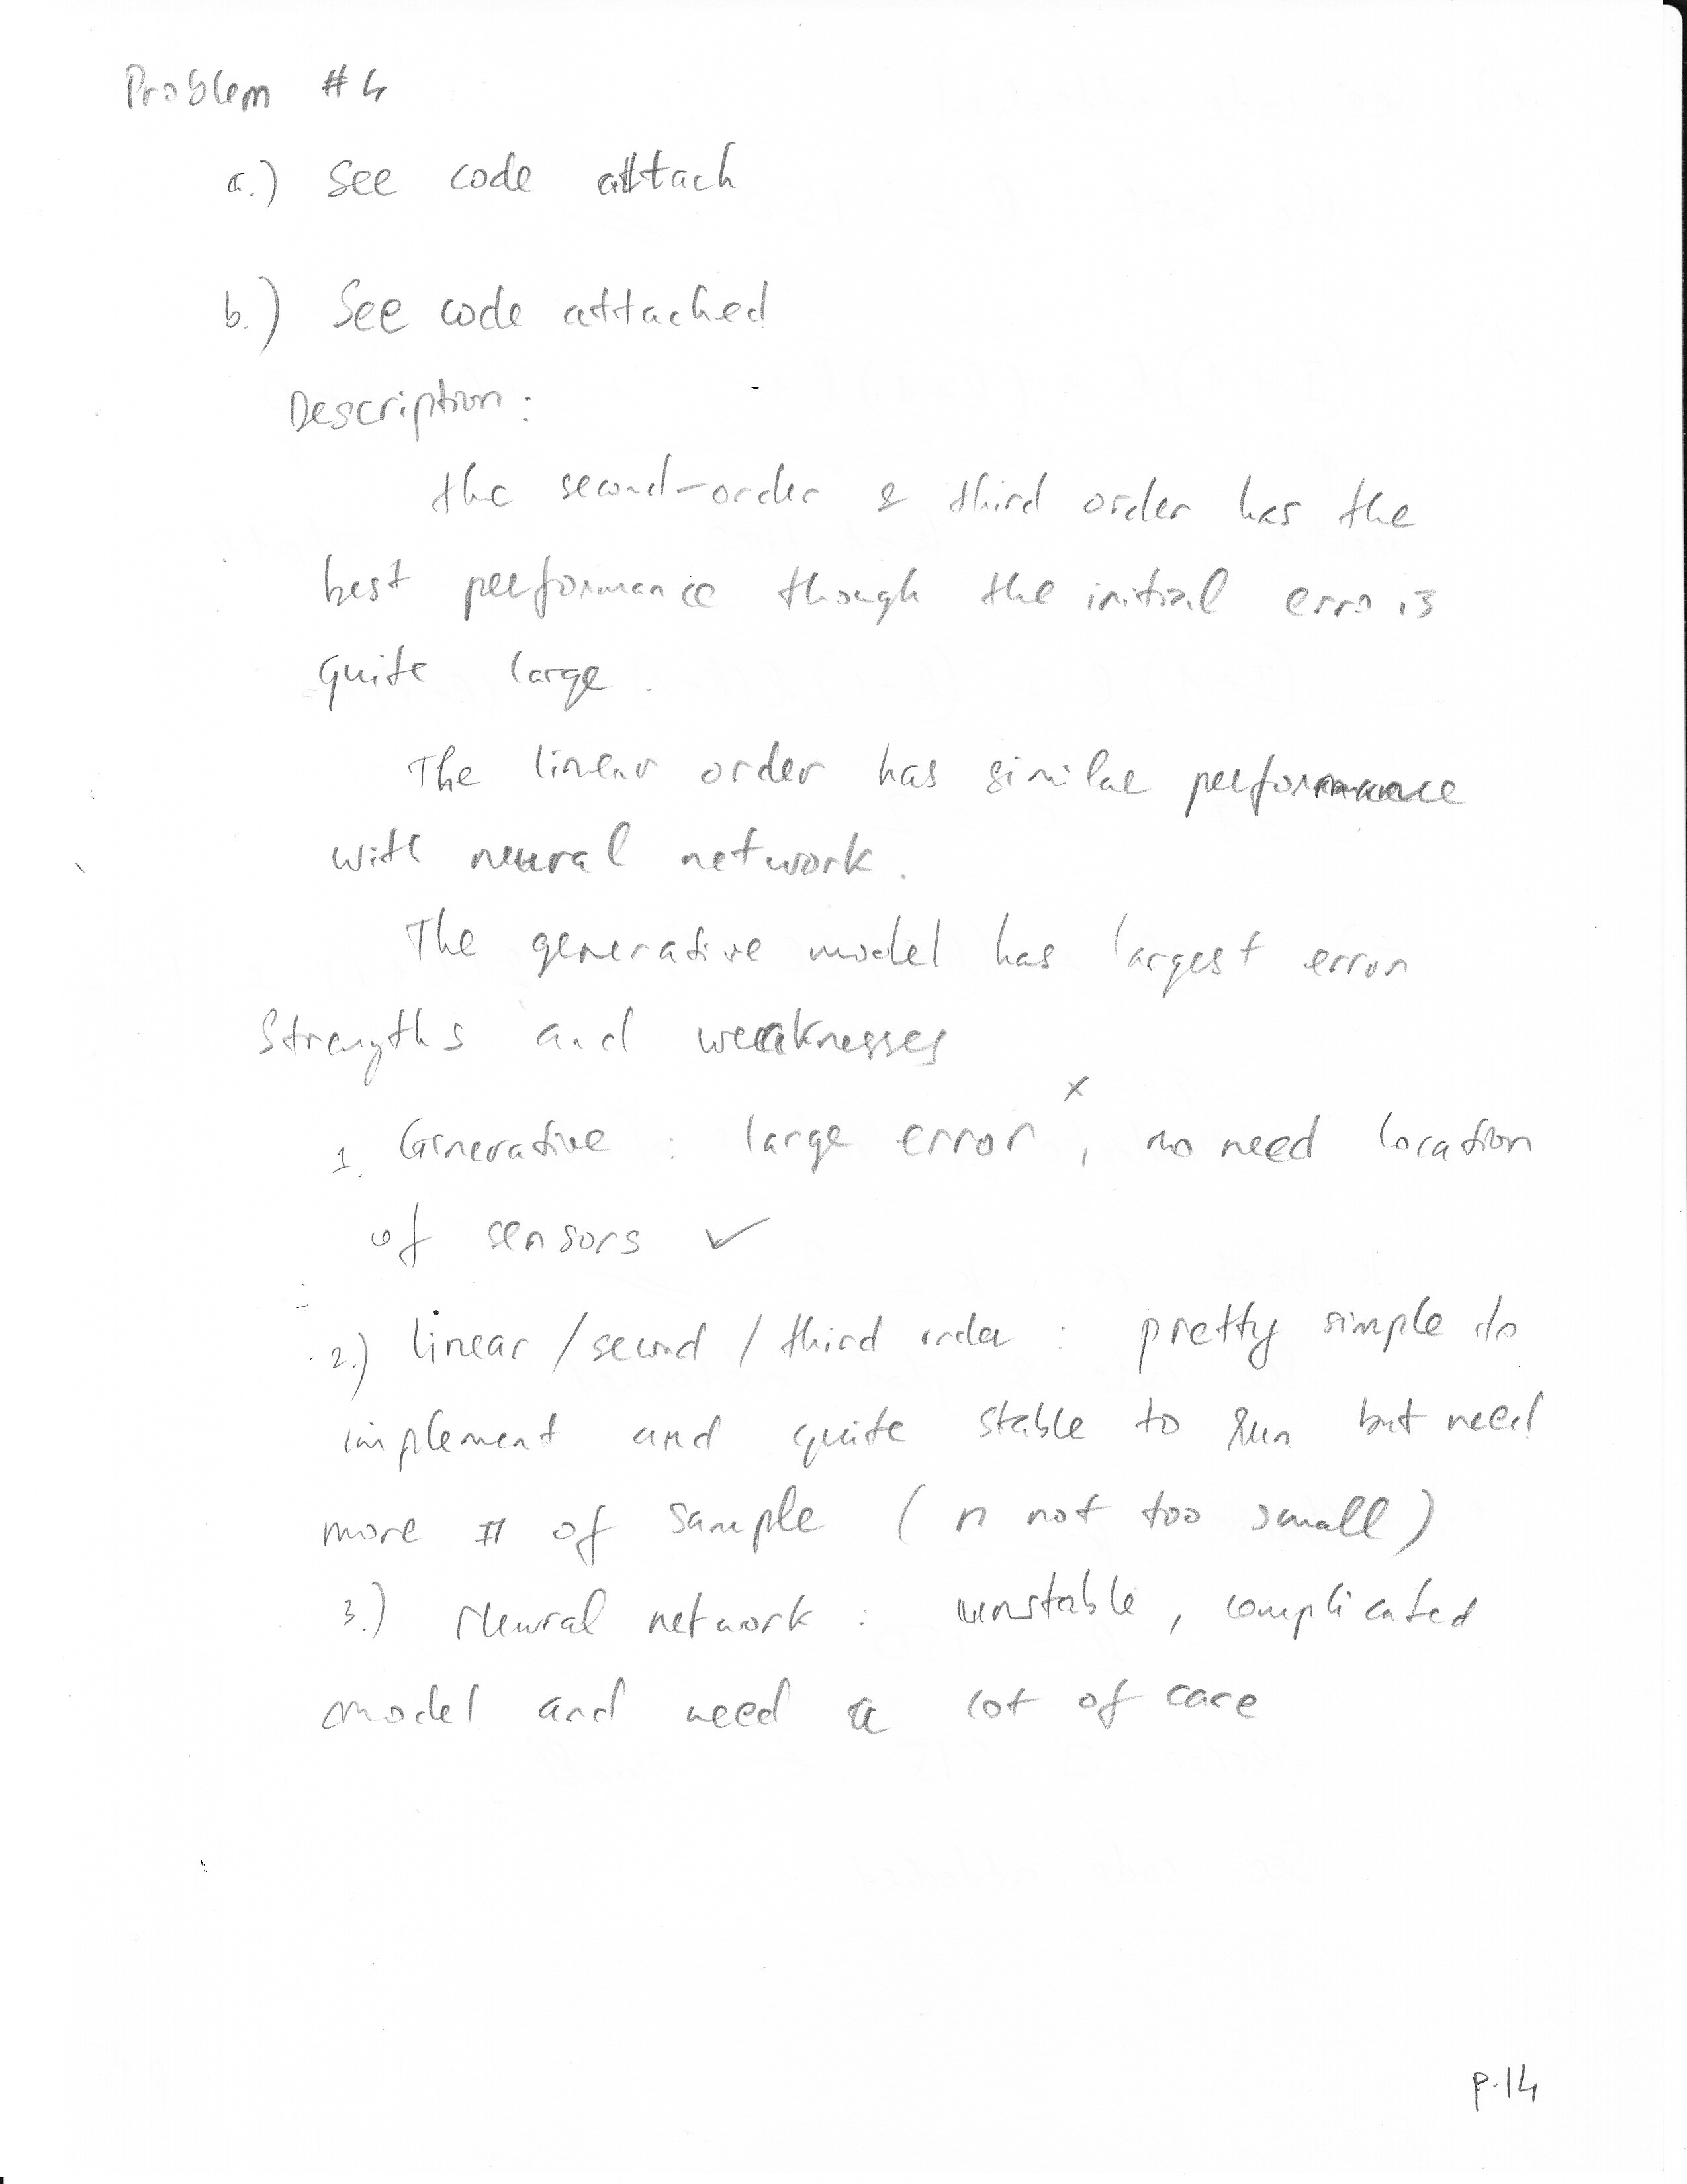 Problem #4
a.) See code attach
b.) See code attached
Description:
the second-order & third order has the
best performance though the initial erro is
quite large.
The linear order has similar performance
with neural network.
The generative model has largest error
Strengths and weaknesses
x
1. Generative : large error, no need location
of sensors ✓
2.) linear / second / third order : pretty simple to
implement and quite stable to run but need
more # of sample ( n not too small )
3.) Neural network : unstable, complicated
model and need a lot of care
p.14